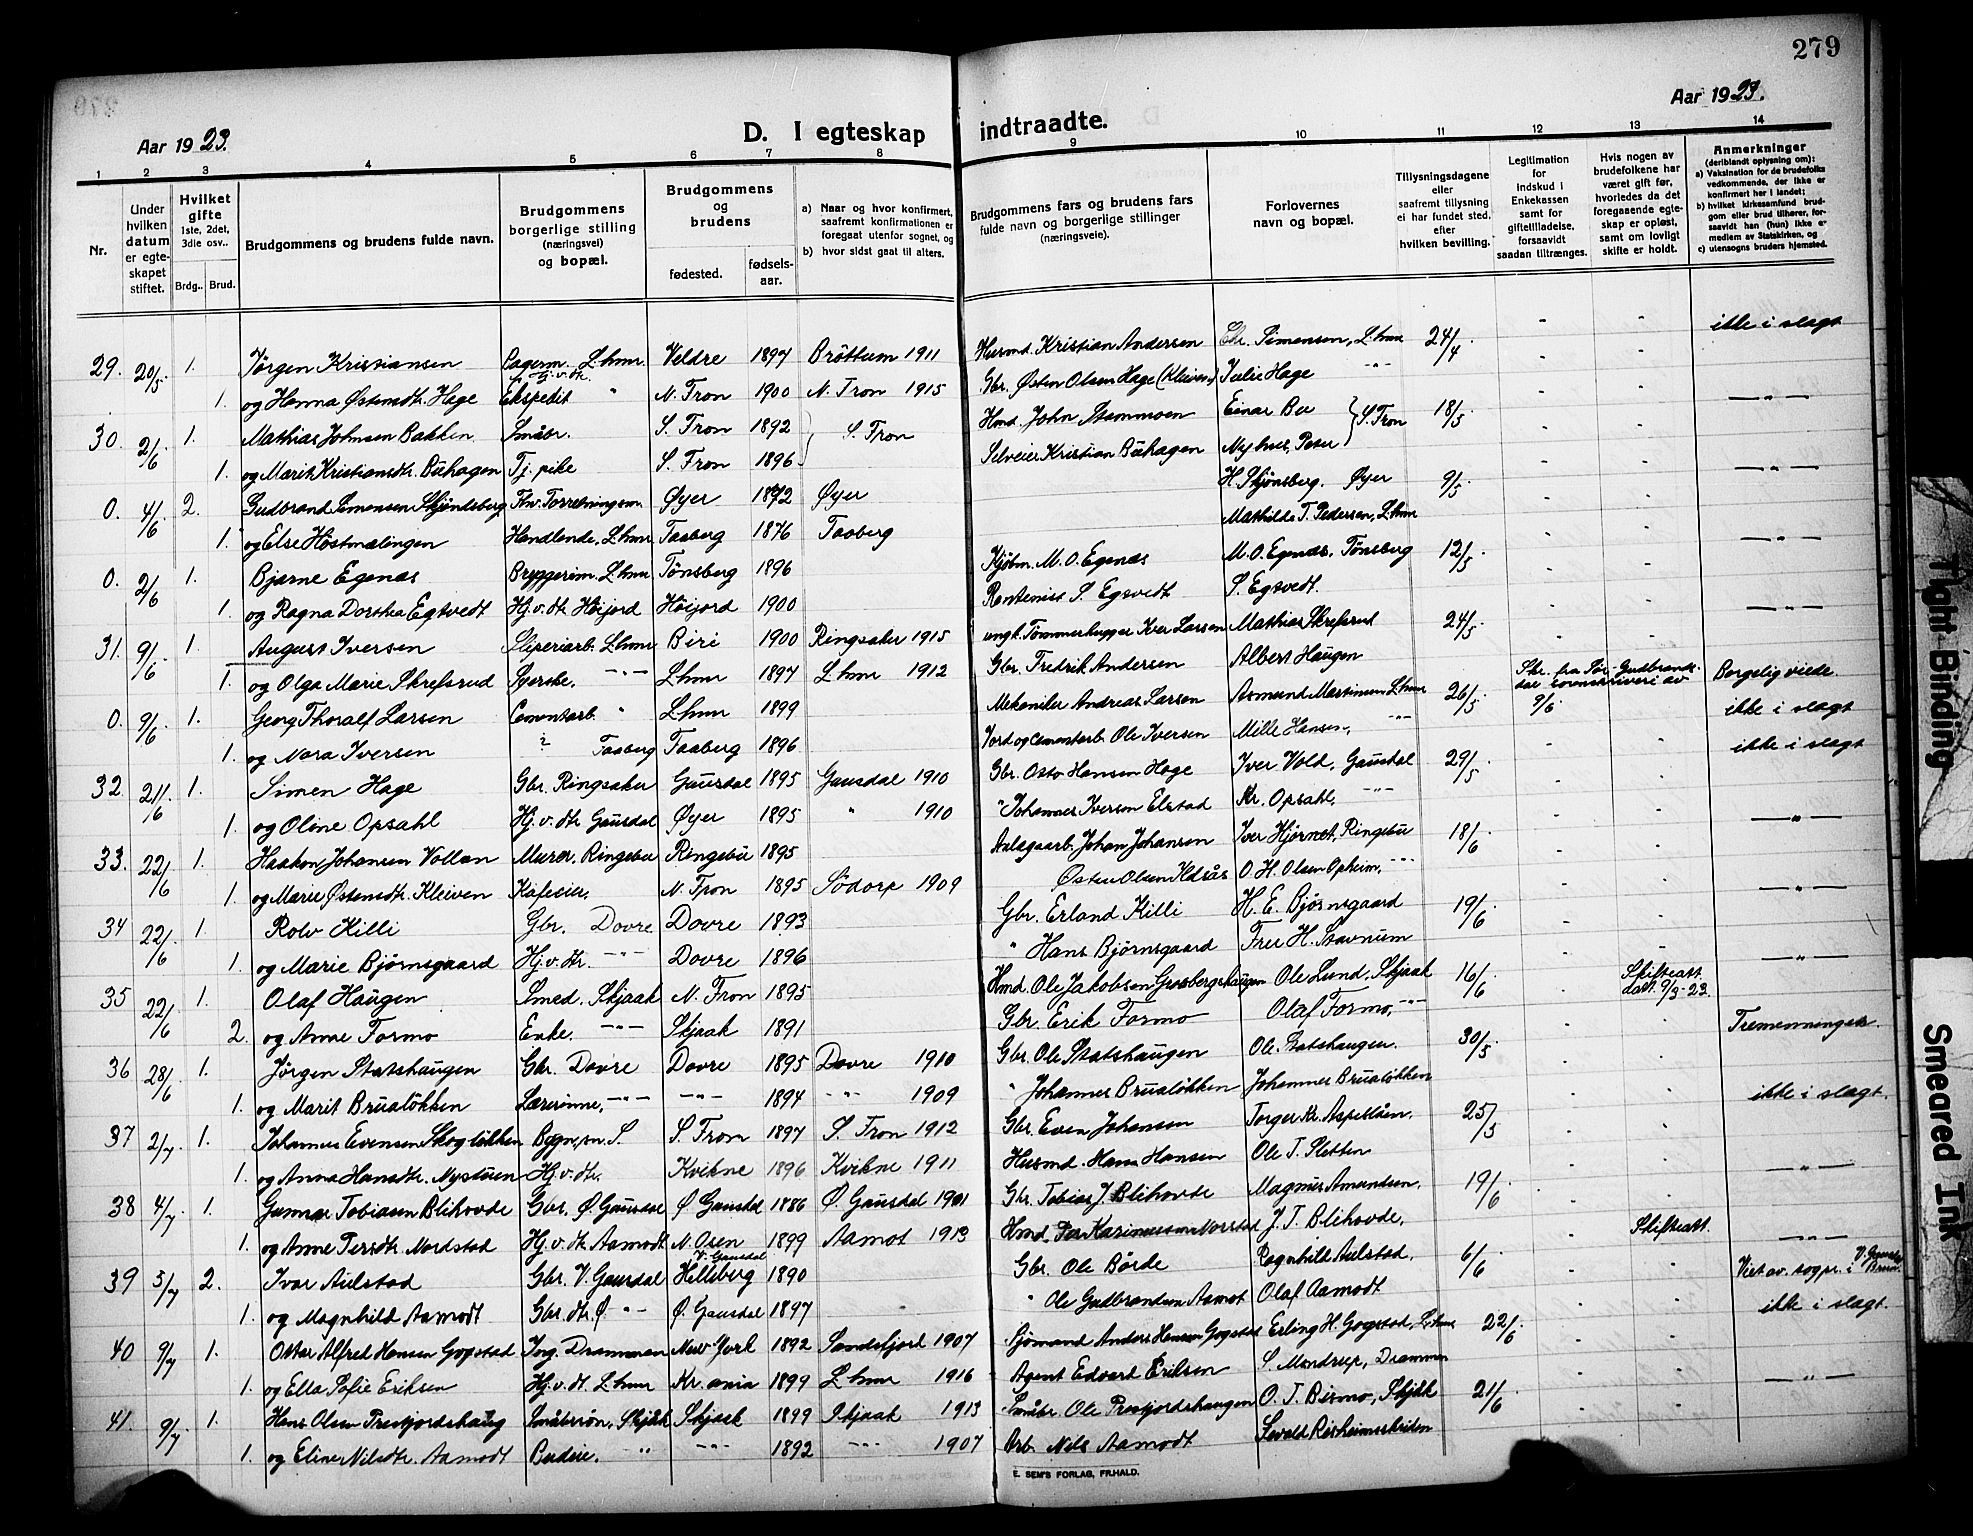 279
Aar 1923.
D. I egteskap indtraadte.
Aar 1923.
1 2 3 4 5 6 7 8 9 10 11 12 13 14
Nr.
Under hvilken datum er egteskapet stiftet.
Hvilket gifte 1ste, 2det, 3die osv..
Brdg.. Brud.
Brudgommens og brudens fulde navn.
Brudgommens borgerlige stilling (næringsvei) og bopæl.
Brudgommens og brudens
fødested. fødsels-aar.
a) Naar og hvor konfirmert, saafremt konfirmationen er foregaat utenfor sognet, og
b) hvor sidst gaat til alters.
Brudgommens fars og brudens fars fulde navn og borgerlige stillinger (næringsveie).
Forlovernes navn og bopæl.
Tillysningsdagene eller saafremt tillysning ei har fundet sted. efter hvilken bevilling.
Legitimation for indskud i Enkekassen samt for giftetilladelse, forsaavidt saadan tiltrænges.
Hvis nogen av brudefolkene har været gift før, hvorledes da det foregaaende egteskap er opløst, samt om lovligt skifte er holdt.
Anmerkninger (deriblandt oplysning om):
a) Vaksination for de brudefolks vedkommende, der ikke er konfirmert her i landet;
b) hvilket kirkesamfund brudgom eller brud tilhører, forsaavidt han (hun) ikke er medlem av Statskirken, og
c) utensogns bruders hjemsted.
29. 20/5. 1. Jørgen Kristiansen Lagerm. L.hmr Veldre 1897 Brøttum 1911 Husmd. Kristian Andersen Chr. Simensen, L.hmr 24/4 - - ikke i slægt
1. og Hanna Østensdtr. Hage Ekspedit " N. Fron 1900 N. Fron 1915 Gbr. Østen Olsen Hage (Kleiven) Julie Hage -"-
30. 2/6 1. Mathias Johnsen Bakken Småbr. S. Fron 1892 } S. Fron Hmd. John Stammoen Einar Bu } S. Fron 18/5 - - -"-
1. og Marit Kristiansdtr. Buhagen Tj. pike S. Fron 1896 Selveier Kristian Buhagen Nyhus, Peter
0. 4/6 2. Gudbrand Simensen Skjøndsberg Fhv. Forretningsm. Øyer 1872 Øyer H. Skjønsberg. Øyer 9/5 - - -"-
1. og Else Høstmælingen Handlende, L.hmr Faaberg 1876 Faaberg Mathilde T. Pedersen, L.hmr
0. 2/6 1. Bjarne Egenæs Bryggerim. L.hmr Tønsberg 1896 Kjøbm. M. O. Egenæs M. O. Egenæs, Tønsberg 12/5 - - -"-
1. og Ragna Dorthea Egtvedt Hj.v.dtr. Høijord Høijord 1900 Rentenist S. Egtvedt S. Egtvedt.
31. 9/6 1. August Iversen Sliperiarb. L.hmr Biri 1900 Ringsaker 1915 ungk. Tømmerhugger Iver Larsen Mathias Skrefsrud 24/5 - - -"-
1. og Olga Marie Skrefsrud Syerske. -"- L.hmr 1897 L.hmr 1912 Gbr. Fredrik Andersen Albert Haugen
0. 9/6 1. Georg Thoralf Larsen Cementarb. " L.hmr 1899 Mekaniker Andreas Larsen Asmund Martinsen L.hmr 26/5. Skr. fra Sør-Gudbrandsdal sorenskriveri av 9/6 Borgelig viede. ikke i slægt
1. og Nora Iversen Faaberg Faaberg 1896 Jord og Cementarb. Ole Iversen Mille Hansen, -"-
32. 21/6 1. Simen Hage Gbr. Ringsaker Gausdal 1895 Gausdal 1910 Gbr. Otto Hansen Hage Iver Vold, Gausdal 29/5 - - ikke i slægt
1. og Oline Opsahl Hj.v.dtr Gausdal Øyer 1895 " 1910 " Johannes Iversen Elstad Kr. Opsahl, -"-
33. 22/6 1. Haakon Johansen Vollan Murer, Ringebu Ringebu 1895 Anlægsarb. Johan Johansen Iver Hjørnet, Ringebu 18/6 - - -"-
1. og Marie Østensdtr. Kleiven Kafeeier. N. Fron 1895 Sødorp 1909 Østen Olsen O. H. Olsen Opheim, -"-
34 22/6 1. Rolv Killi Gbr. Dovre Dovre 1893 Gbr. Erland Killi H. E. Bjørnsgaard 19/6 - - -"-
1. og Marie Bjørnsgaard Hj.v.dtr. -"- Dovre 1896 " Hans Bjørnsgaard Fru H. Stavnum
35 22/6 1. Olaf Haugen Smed. Skjaak N. Fron 1895 Hmd. Ole Jakobsen Graabergshaugen Ole Lund, Skjaak 16/6 - Skifteatt. dat. 9/3-23. -"-
2. og Anne Formo Enke. -"- Skjaak 1891 Gbr. Erik Formo Olaf Formo, -"-
36 28/6 1. Jørgen Statshaugen Gbr. Dovre Dovre 1895 Dovre 1910 Gbr. Ole Statshaugen Ole Statshaugen. 30/5 - - Tremenninger.
1. og Marit Brualøkken Lærerinne, -"- -"- 1894 -"- 1909 " Johannes Brualøkken Johannes Brualøkken
37 2/7 1. Johannes Evensen Skogløkken Bygn.sn. S S. Fron 1897 S. Fron 1912 Gbr. Even Johansen Torger Kr. Aspeslåen. 25/5 - - ikke i slægt.
1. og Anna Hansdtr. Nystuen Hj.v.dtr. Kvikne 1896 Kvikne 1911 Husmd. Hans Hansen Ole T. Sletten
38 4/7 1. Gunnar Tobiasen Blihovde Gbr. Ø. Gausdal Ø. Gausdal 1886 Ø. Gausdal 1901 Gbr. Tobias J. Blihovde Magnus Amundsen. 19/6 - - -"-
1. og Anne Persdtr. Nordstad Hj.v.dtr. Aamodt N. Osen 1899 Aamot 1913 Hmd. Per Karinussen Norstad J. T. Blihovde.
39 5/7 2. Ivar Aulstad Gbr. V. Gausdal Helleberg V. Gausdal 1890 Gbr. Ole Børde Ragnhild Aulstad, 6/6 - Skifteatt. -"- Viet av sogpr. i V. Gausdal
1. og Magnhild Aamodt Gbr.dtr. Ø -"- Ø. Gausdal 1897 " Ole Gudbrandsen Aamot Olaf Aamodt
40 9/7 1. Ottar Alfred Hansen Gogstad Ing. Drammen New York 1892 Sandefjord 1907 Sjømand Anders Hansen Gogstad Erling H. Gogstad, L.hmr 22/6. - - ikke i slægt.
1. og Ella Sofie Eriksen Hj.v.dt. L.hmr Kr.ania 1899 L.hmr 1916 Agent Edvard Eriksen S. Mendrup, Drammen
41. 9/7 1. Hans Olsen Prestjordshaug Småbrsøn, Skjåk Skjaak 1899 Skjaak 1913 Småbr. Ole Prestjordshaugen O. T. Bismo, Skjåk 21/6 - - -"-
1. og Eline Nilsdtr. Aamodt Budeie. " -"- 1892 -"- 1907 Arb. Nils Aamodt Sevald Risheimskriden
E. SEM'S FORLAG, FR.HALD.
Tight Binding
Smeared Ink